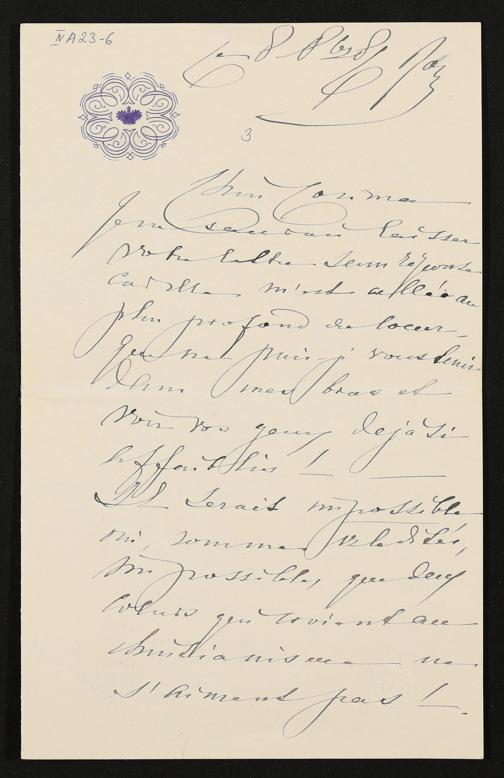 IV A 23-6
3
Chère Cosima
Je ne saurais laisser
votre lettre sans réponse
car elle m'est allée au
plus profond du coeur,
que ne puis-je vous tenir
dans mes bras et
voir vos yeux dejà si
affaiblis !
Il serait impossible
impossible, que deux
coeurs qui croient au
christianisme ne
s'aiment pas !